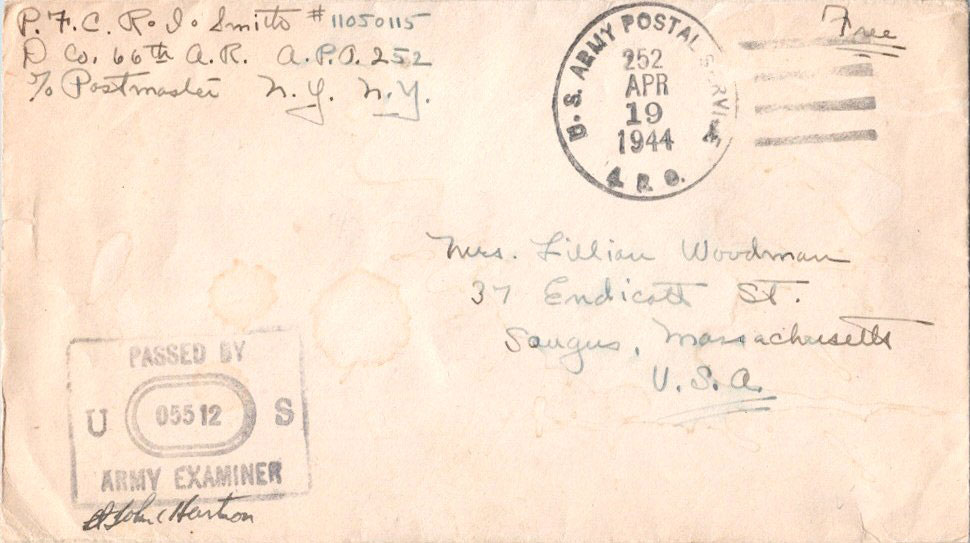 P.F.C. R. I. Smith #11050115
D Co. 66th A.R. A.P.O. 252
c/o Postmaster N.Y. N.Y.
Free
U.S. ARMY POSTAL SERVICE
252
APR
19
1944
A.P.O.
Mrs. Lillian Woodman
37 Endicott St.
Saugus, Massachusetts
U.S.A.
PASSED BY
U 05512 S
ARMY EXAMINER
John Hartson